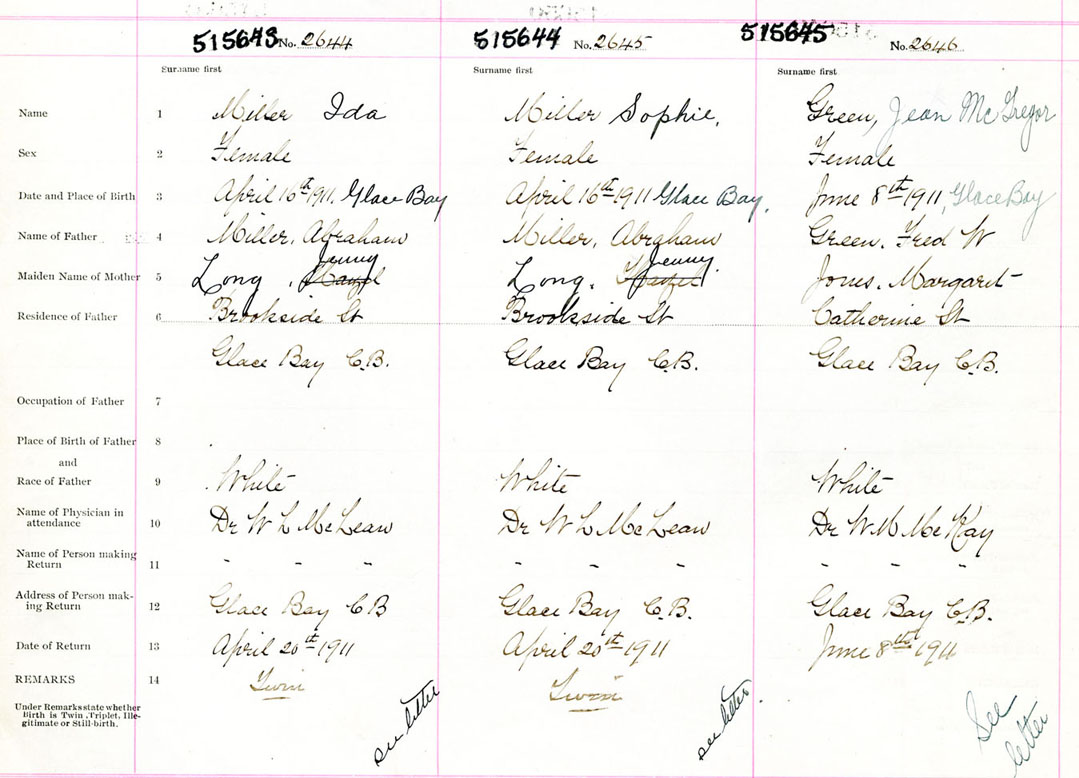 515643 No. 2644 515644 No. 2645 515645 No. 2646
Surname first Surname first Surname first
Name 1 Miller Ida Miller Sophie, Green, Jean McGregor
Sex 2 Female Female Female
Date and Place of Birth 3 April 16th 1911, Glace Bay April 16th 1911 Glace Bay, June 8th 1911, Glace Bay
Name of Father 4 Miller, Abraham Miller, Abraham Green, Fred W
Jenny Jenny
Maiden Name of Mother 5 Long, Long, Jones, Margaret
Residence of Father 6 Brookside St Brookside St Catherine St
Glace Bay C.B. Glace Bay C.B. Glace Bay C.B.
Occupation of Father 7
Place of Birth of Father 8
and
Race of Father 9 White White White
Name of Physician in
attendance 10 Dr W L McLean Dr W L McLean Dr W M McKay
Name of Person making
Return 11 " " " " " " " " "
Address of Person mak-
ing Return 12 Glace Bay C B Glace Bay C.B. Glace Bay C.B.
Date of Return 13 April 20th 1911 April 20th 1911 June 8th 1911
REMARKS 14 Twin Twin
Under Remarks state whether
Birth is Twin, Triplet, Ille-
gitimate or Still-birth.
see letter see letter See
letter